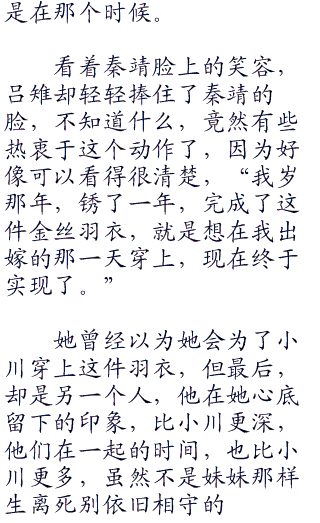 是在那个时候。
看着秦靖脸上的笑容，
吕雉却轻轻捧住了秦靖的
脸，不知道什么，竟然有些
热衷于这个动作了，因为好
像可以看得很清楚，“我岁
那年，锈了一年，完成了这
件金丝羽衣，就是想在我出
嫁的那一天穿上，现在终于
实现了。”
她曾经以为她会为了小
川穿上这件羽衣，但最后，
却是另一个人，他在她心底
留下的印象，比小川更深，
他们在一起的时间，也比小
川更多，虽然不是妹妹那样
生离死别依旧相守的